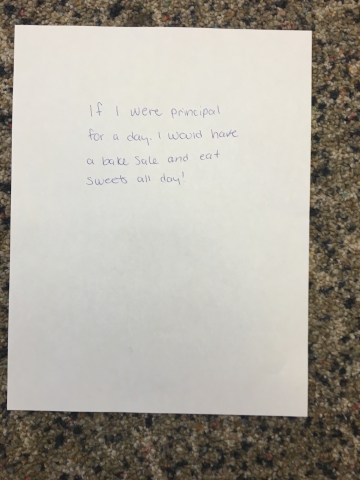 If I were principal
for a day. I would have
a bake sale and eat
sweets all day!